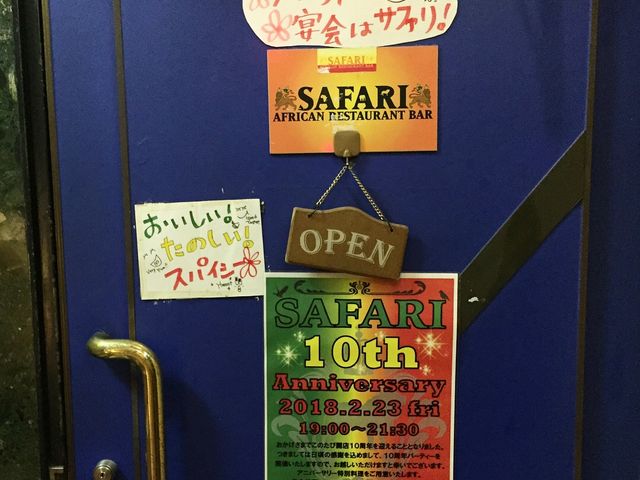 宴会はサファリ!
SAFARI
SAFARI
AFRICAN RESTAURANT BAR
OPEN
おいしい!
たのしい!
スパイシー
SAFARI
10th
Anniversary
2018.2.23 fri
19:00~21:30
おかげさまでこのたび開店10周年を迎えることとなりました。
つきましては日頃の感謝を込めまして、10周年パーティーを
開催いたしますので、お越しいただけますと幸いでございます。
アニバーサリー特別料理をご用意いたします。